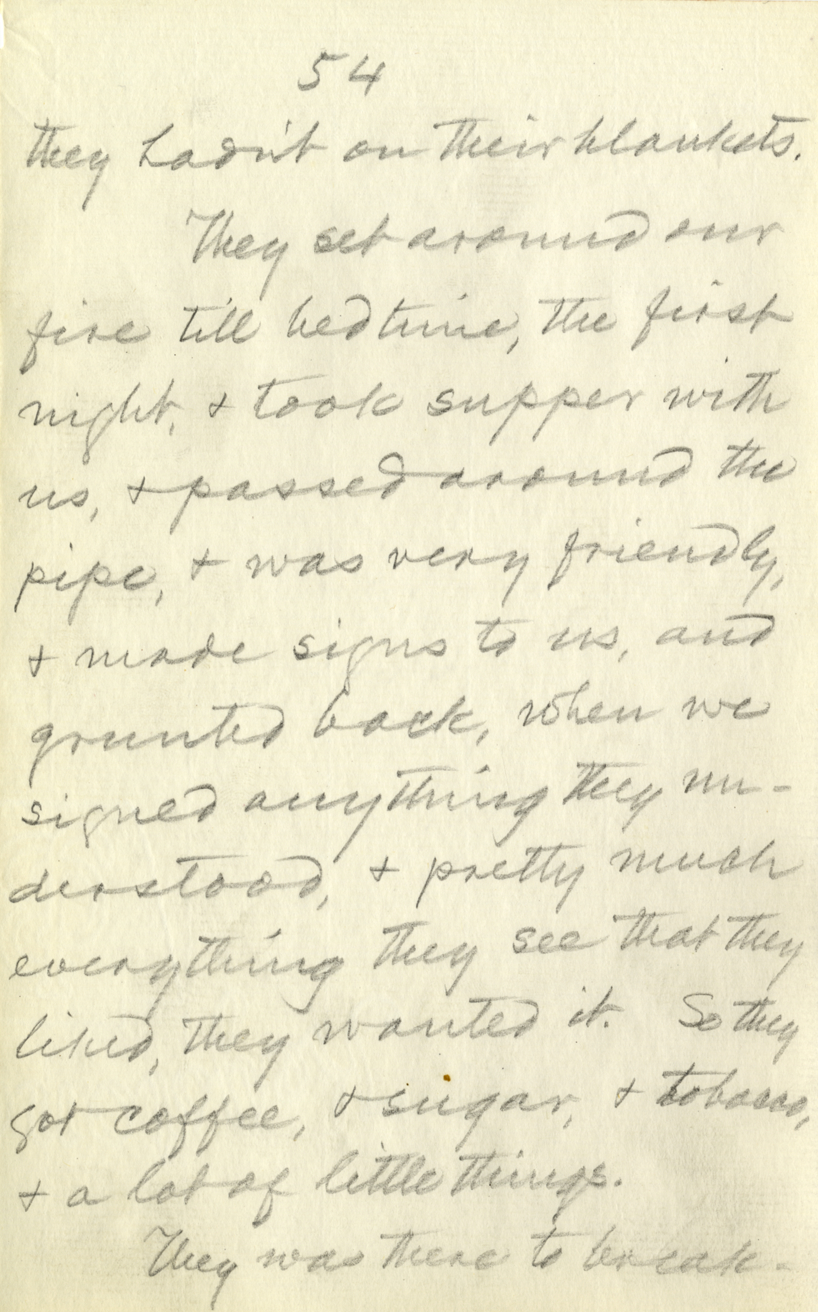 54
they hadn't on their blankets.
They set around our
fire till bedtime, the first
night, & took supper with
us, & passed around the
pipe, & was very friendly,
& made signs to us, and
grunted back, when we
signed anything they un-
derstood, & pretty much
everything they see that they
liked, they wanted it. So they
got coffee, & sugar, & tobacco,
& a lot of little things.
They was there to break-